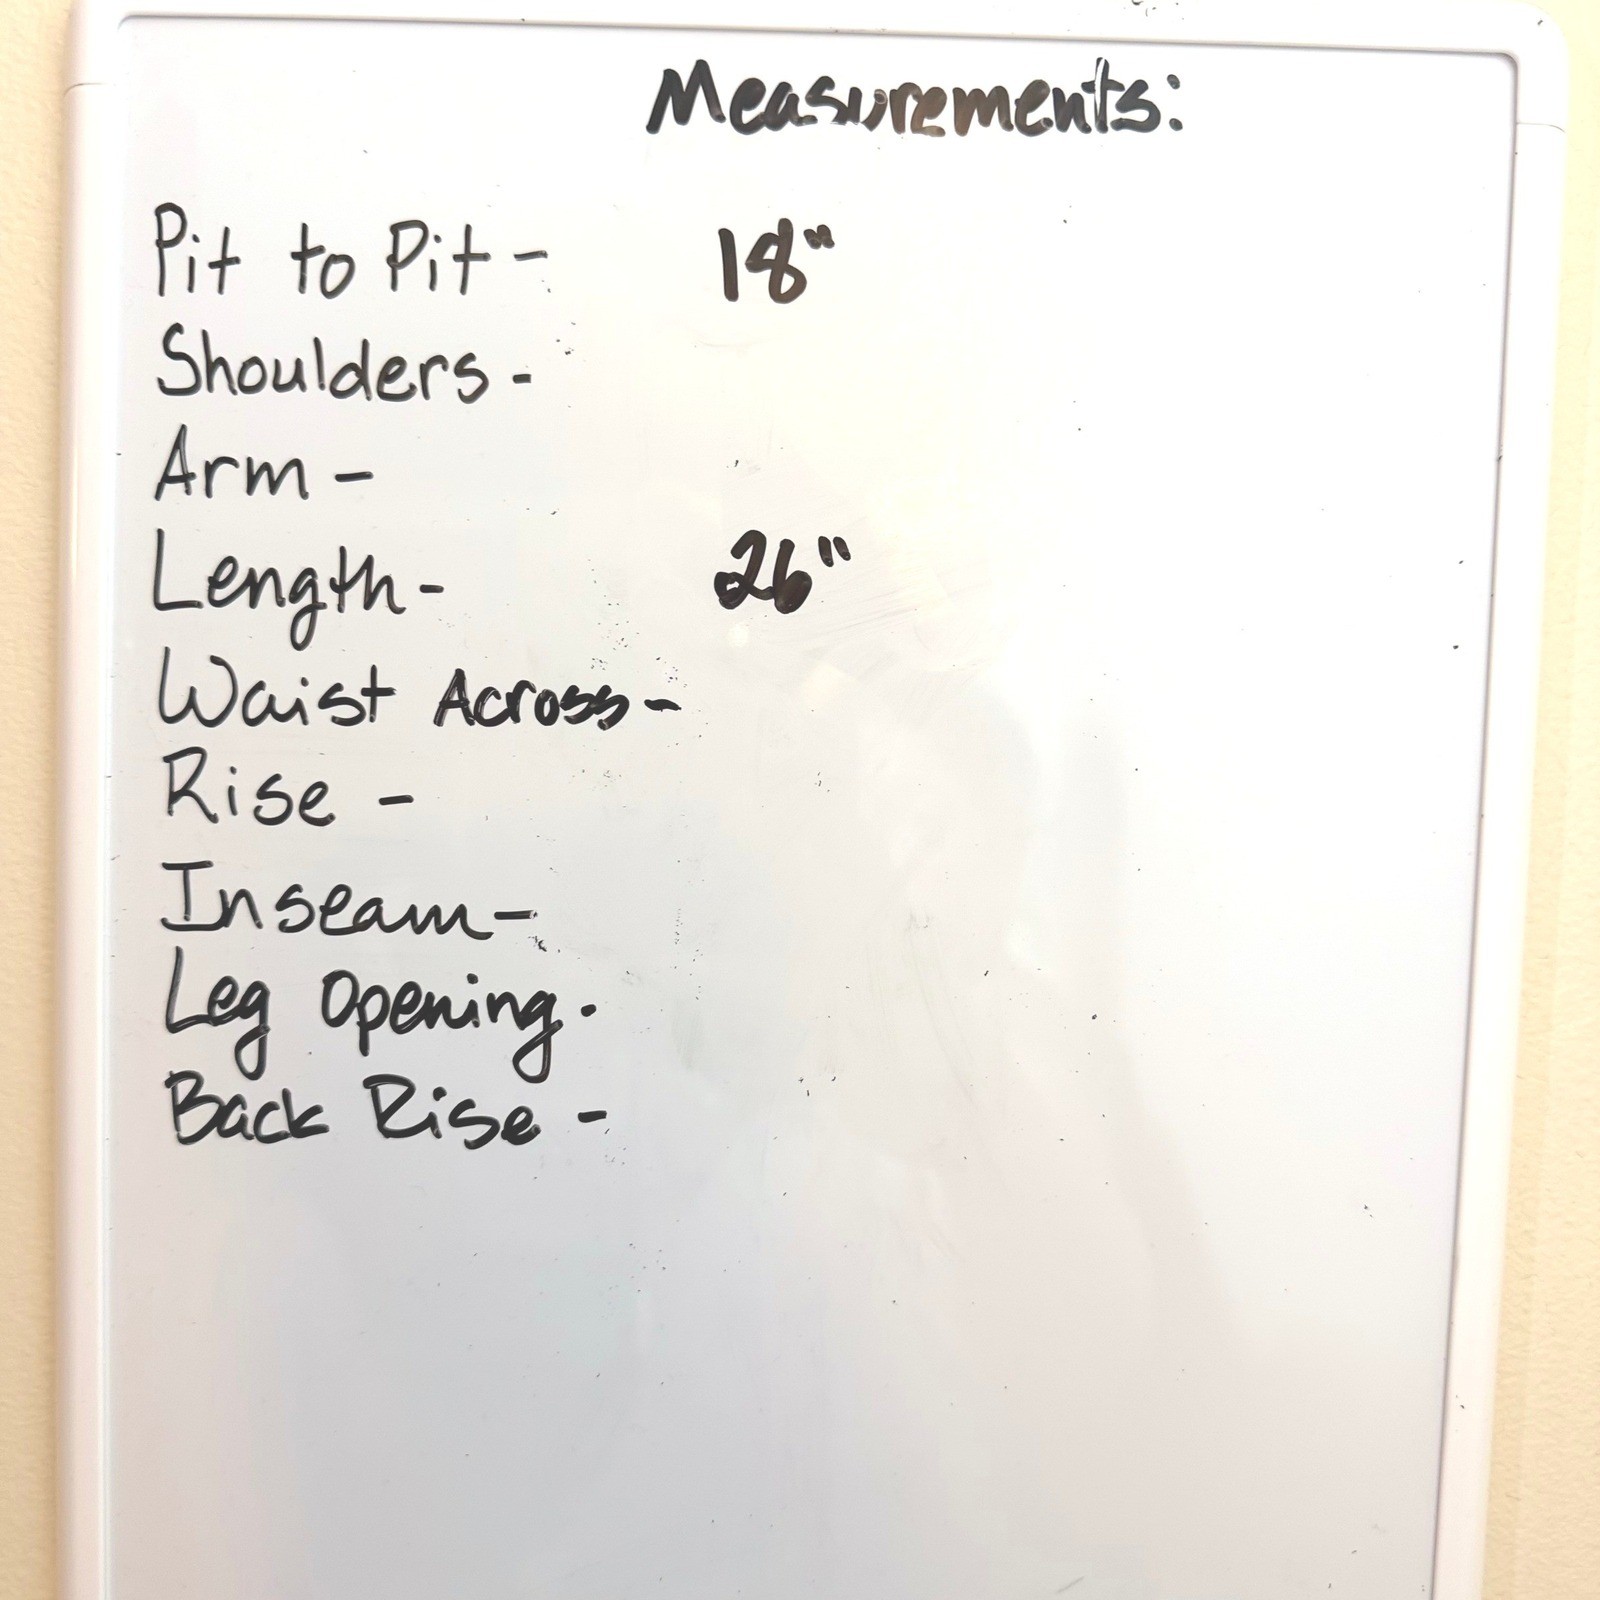 Measurements:
Pit to Pit - 18"
Shoulders -
Arm -
Length - 26"
Waist Across -
Rise -
Inseam -
Leg Opening -
Back Rise -